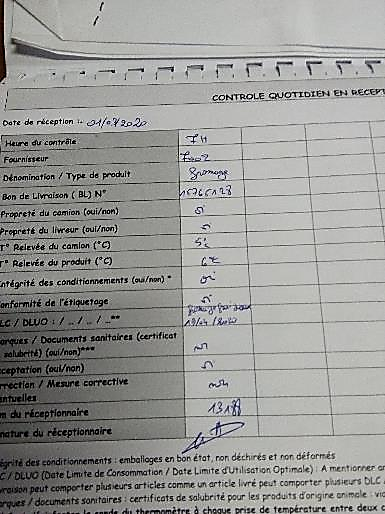 CONTROLE QUOTIDIEN EN RECEPT
Date de réception : 01/09/2020
Heure du contrôle 7H
Fournisseur
Dénomination / Type de produit fromage
Bon de Livraison ( BL) N°
Propreté du camion (oui/non) oi
Propreté du livreur (oui/non) oi
T° Relevée du camion (°C) 5°c
T° Relevée du produit (°C) 6°c
Intégrité des conditionnements (oui/non) * oi
onformité de l'étiquetage oi
LC / DLUO : / .. / .. / ..**
arques / Documents sanitaires (certificat
salubrité) (oui/non)***
ceptation (oui/non) oi
rrection / Mesure corrective
entuelles non
m du réceptionnaire
nature du réceptionnaire
égrité des conditionnements : emballages en bon état, non déchirés et non déformés
C / DLUO (Date Limite de Consommation / Date Limite d'Utilisation Optimale) : A mentionner
vraison peut comporter plusieurs articles comme un article livré peut comporter plusieurs DLC
arques / documents sanitaires : certificats de salubrité pour les produits d'origine animale :
du thermomètre à chaque prise de température entre deux